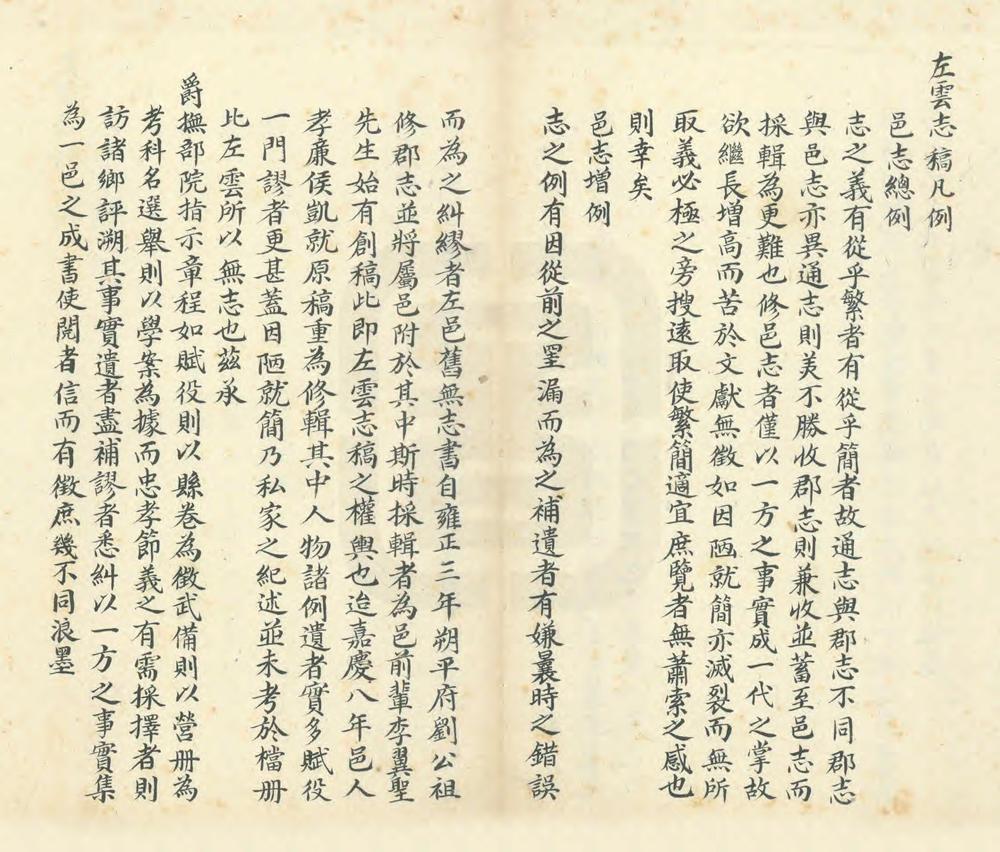 左雲志稿凡例
邑志總例
志之義有從乎繁者有從乎簡者故通志與郡志不同郡志
與邑志亦異通志則美不勝收郡志則兼收並蓄至邑志而
採輯為更難也修邑志者僅以一方之事實成一代之掌故
欲繼長增高而苦於文獻無徵如因陋就簡亦滅裂而無所
取義必極之旁搜遠取使繁簡適宜庶覽者無蕭索之感也
則幸矣
邑志增例
志之例有因從前之罣漏而為之補遺者有嫌曩時之錯誤
而為之糾繆者左邑舊無志書自雍正三年朔平府劉公祖
修郡志並將屬邑附於其中斯時採輯者為邑前輩李翼聖
先生始有創稿此即左雲志稿之權輿也迨嘉慶八年邑人
孝廉侯凱就原稿重為修輯其中人物諸例遺者實多賦役
一門謬者更甚蓋因陋就簡乃私家之紀述並未考於檔册
比左雲所以無志也茲承
爵撫部院指示章程如賦役則以縣卷為徵武備則以營册為
考科名選舉則以學案為據而忠孝節義之有需採擇者則
訪諸鄉評溯其事實遺者盡補謬者悉糾以一方之事實集
為一邑之成書使閱者信而有徵庶幾不同浪墨